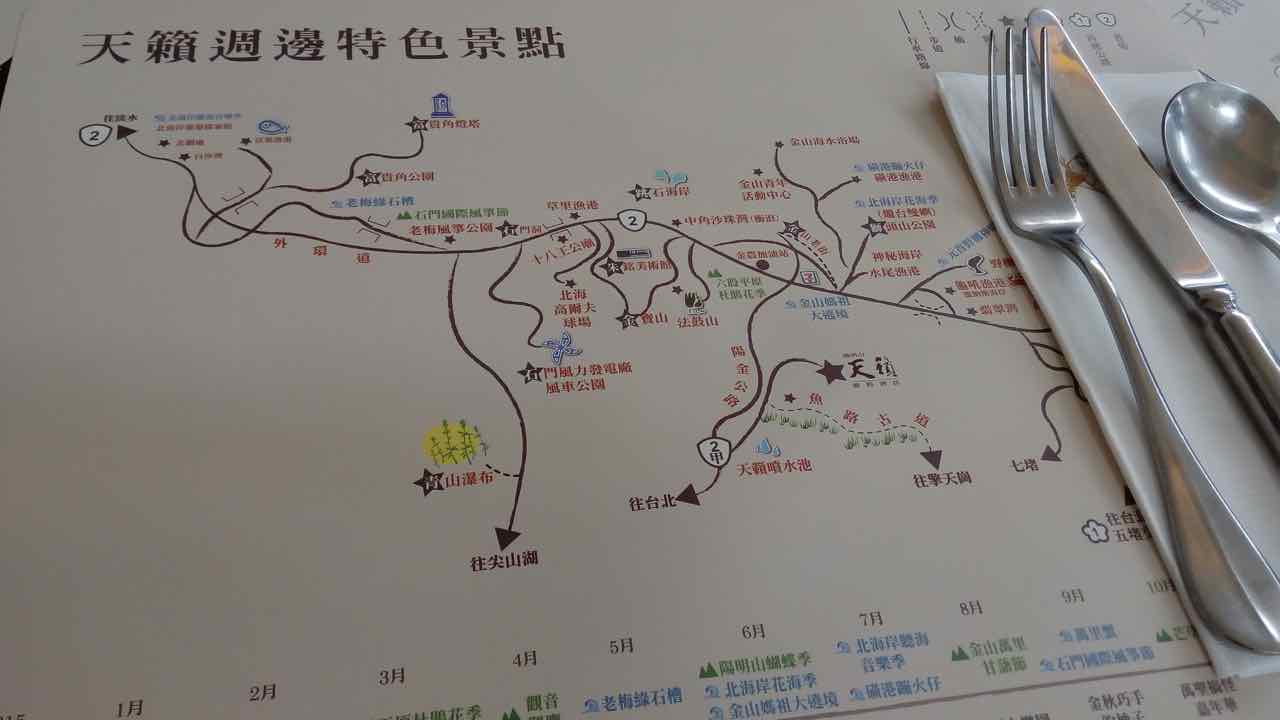 天籟週邊特色景點
行車路線
步道
往淡水
2
白沙灣
富貴角燈塔
富貴角公園
老梅綠石槽
石門國際風箏節
老梅風箏公園
外環道
石門洞
草里漁港
十八王公廟
2
石海岸
中角沙珠灣(衝浪)
金山青年
活動中心
金山海水浴場
磺港蹦火仔
磺港漁港
北海岸花海季
(燭台雙嶼)
獅頭山公園
神秘海岸
水尾漁港
龜吼漁港
翡翠灣
朱銘美術館
北海
高爾夫
球場
金寶山
法鼓山
六股平原
杜鵑花季
金農加油站
7
金山媽祖
大遶境
石門風力發電廠
風車公園
陽金公路
天籟
魚路古道
2甲
天籟噴水池
往台北
往擎天崗
七堵
青山瀑布
往尖山湖
1
往台北
五堵
1月
2月
3月
4月
5月
6月
7月
8月
9月
10月
杜鵑花季
觀音
老梅綠石槽
陽明山蝴蝶季
北海岸花海季
金山媽祖大遶境
北海岸聽海
音樂季
磺港蹦火仔
金山萬里
甘藷節
萬里蟹
石門國際風箏節
金秋巧手
嘉年華